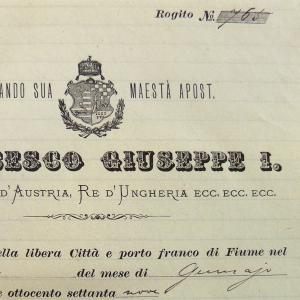 Rogito No. 765
ANDO SUA MAESTÀ APOST.
CESCO GIUSEPPE I.
D'AUSTRIA, RE D'UNGHERIA ECC. ECC. ECC.
ella libera Città e porto franco di Fiume nel
del mese di Gennajo
e ottocento settanta nove